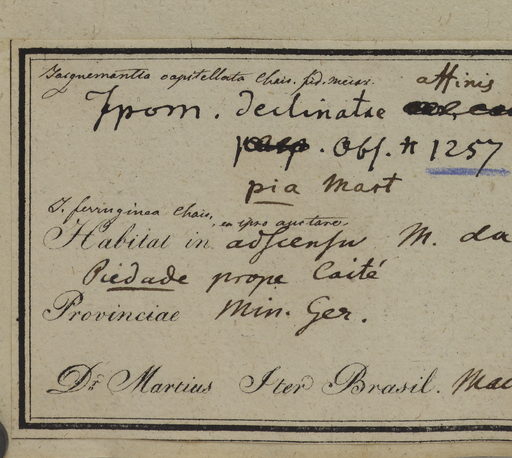 Jacquemontia capitellata Chois. fid. mear.
affinis
Ipom. declinatae
. Obs. n 1257
pia Mart
I. ferruginea Chois, ex ipso auctore.
Habitat in adscensu M. da
Piedade prope Caité
Provinciae Min. Ger.
Dr. Martius Iter Brasil.